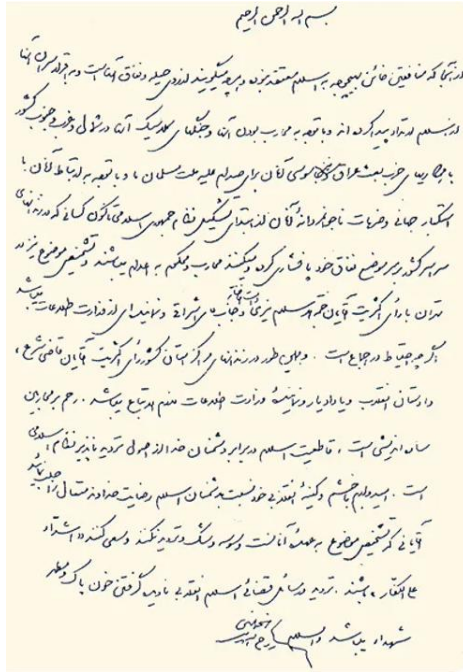 بسم الله الرحمن الرحیم
از آنجا که منافقین خائن بهیچوجه به اسلام معتقد نبوده و هرچه میگویند از روی حیله و نفاق آنهاست و به اقرار سران آنها
از اسلام ارتداد پیدا کرده‌اند و با توجه به محارب بودن آنها و جنگهای کلاسیک آنها در شمال و غرب و جنوب کشور
با همکاریهای حزب بعث عراق و نیز جاسوسی آنان برای صدام علیه ملت مسلمان ما و با توجه به ارتباط آنان با
استکبار جهانی و ضربات ناجوانمردانه آنان از ابتدای تشکیل نظام جمهوری اسلامی تا کنون کسانی که در زندانهای
سراسر کشور بر سر موضع نفاق خود پافشاری کرده و میکنند محارب و محکوم به اعدام میباشند و تشخیص موضوع نیز در
تهران با رأی اکثریت آقایان حجةالاسلام نیری و جناب آقای اشراقی و نماینده‌ای از وزارت اطلاعات میباشد
اگر چه احتیاط در اجماع است . و همین طور در زندانهای مراکز استان کشور رأی اکثریت آقایان قاضی شرع ،
دادستان انقلاب و یا دادیار و نماینده وزارت اطلاعات لازم الاتباع میباشد . رحم بر محاربین
ساده‌اندیشی است ، قاطعیت اسلام در برابر دشمنان خدا از اصول تردید ناپذیر نظام اسلامی
است . امیدوارم با خشم و کینهٔ انقلابی خود نسبت به دشمنان اسلام رضایت خداوند متعال را جلب نمائید
آقایانی که تشخیص موضوع به عهدهٔ آنان است وسوسه و شک و تردید نکنند و سعی کنند «اشداء
علی الکفار» باشند . تردید در مسائل قضائی اسلام انقلابی نادیده گرفتن خون پاک و مطهر
شهداء میباشد والسلام روح الله الموسوی الخمینی